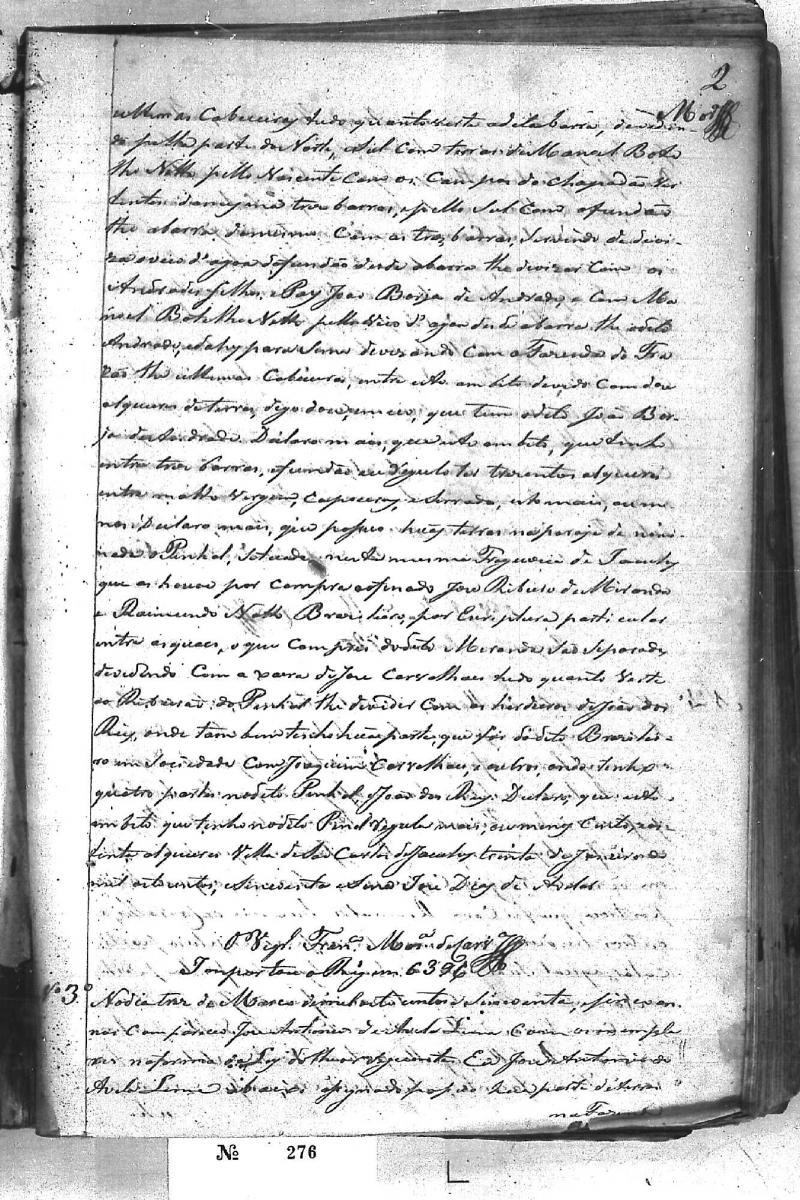 2
ultimas Cabeceiras, tudo quanto verte a dita barra, devidin-
do pella parte do Norte, e Sul Com terras de Manoel Bote
lho Netto, pello Nascente Com os Campos do Chapadão ver
tentes da mesma tres barras, e pello Sul Com o fundão
the a barra do mesmo Com as tres barras, Servindo de devi-
za o veio d'agoa do fundão desde a barra the devizar Com os
Andrades filhos, e Pay João Borja de Andrade, e Com Ma
noel Botelho Netto pello Veio d'agoa desde a barra the o dito
Andrade, e dahy para Sima devizando Com a Fazenda do Fra
zão the ultimas Cabeceiras, entre este ambito devido Com dou
alqueires de terras, digo dou, que tem o dito João Bor-
ja de Andrade. Declaro mais, que este ambito, que tenho
entre tres barras, e fundão regula ter trezentos alqueires
entre matto Virgem, Capoeiras, e Serrado, isto mais, ou me
nos. Declaro mais, que possuo huas terras na paraje de nomi
nada o Pinhal, Situada nesta mesma Freguezia de Jacuhy
que as houve por Compra ao finado José Ribeiro de Miranda
e Raimundo Netto Brazileiro, por Escriptura particular
entre as quaes, o que Comprei do dito Miranda São Separadas
devedindo Com a de José Carvalhaes tudo quanto Verte
ao Ribeirão do Pinhal the devider Com os herdeiros de João dos
Reis, onde tambem tenho hua parte, que foi do dito Brazilei-
ro em Sociedade Com Joaquim Carvalhaes, e outros, onde tenho
quatro partes no dito Pinhal, e João dos Reis. Declaro, que este
ambito que tenho no dito Pinhal regula mais, ou menos Cento e se-
tenta alqueires Villa de São Carlos de Jacuhy trinta de Janeiro de
mil oito centos, e Sincoenta e Seis José Dias de Avelar
O Vigr.º Fran.co Mor.ª de Carv.º
Importou o Reg. em 6396
Nº 3º
No dia tres de Março de mil oito centos e Sincoenta, e Seis an-
nos Compareceo Jose Antonio de Avila Lima Com os exempla
res na forma da Ley do theor Seguinte Eu Jose Antonio de
Avila Lima abaixo assignado possuo hua parte de terras
na Fazen
Nº 276